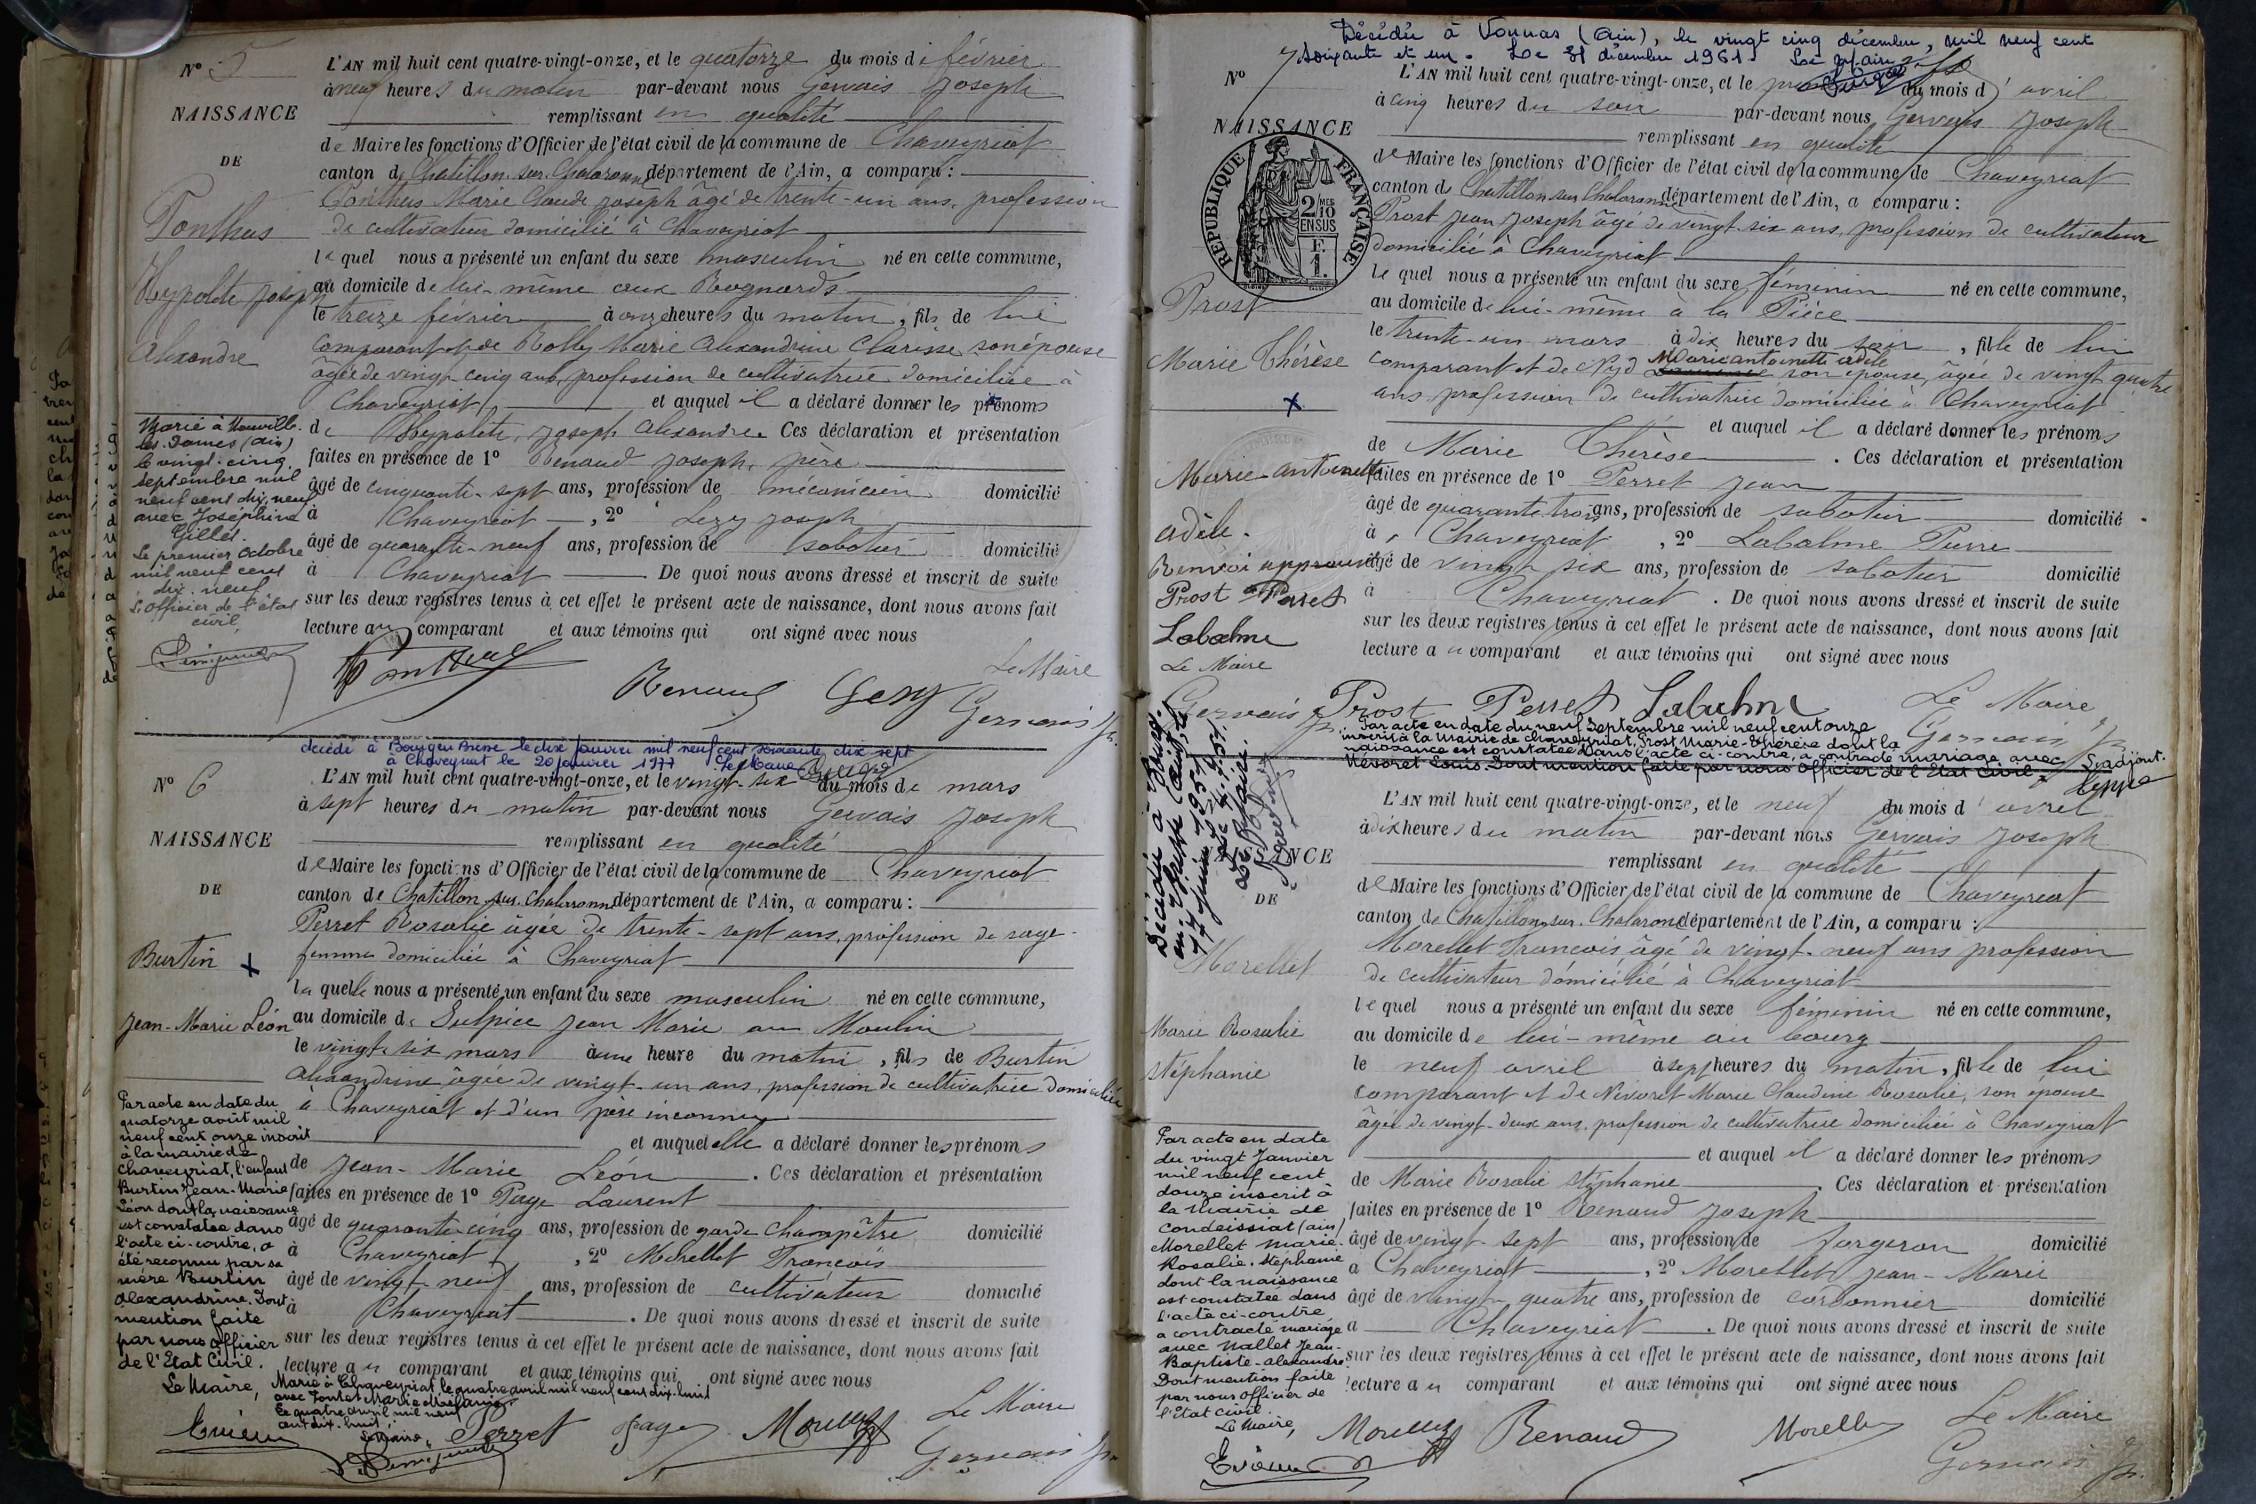 N° 5
NAISSANCE
DE
Ponthus
Hypolite Joseph
Alexandre
Marié à Neuville-
les-Dames (Ain)
le vingt-cinq
septembre mil
neuf cent dix neuf
avec Joséphine
Gillet.
Le premier octobre
mil neuf cent
dix-neuf
L'officier de l'état
civil,
L'AN mil huit cent quatre-vingt-onze, et le quatorze du mois de février
à neuf heures du matin par-devant nous Gervais Joseph
remplissant en qualité
de Maire les fonctions d'Officier de l'état civil de la commune de Chaveyriat
canton de Chatillon-sur-Chalaronne département de l'Ain, a comparu :
Ponthus Marie Claude Joseph âgé de trente-un ans, profession
de cultivateur domicilié à Chaveyriat
lequel nous a présenté un enfant du sexe masculin né en cette commune,
au domicile de lui-même aux Rognards
le treize février à onze heures du matin, fils de lui
comparant et de Rolly Marie Alexandrine Clarisse son épouse
âgée de vingt-cinq ans, profession de cultivatrice domiciliée à
Chaveyriat et auquel il a déclaré donner les prénoms
de Hypolite, Joseph Alexandre. Ces déclaration et présentation
faites en présence de 1° Renaud Joseph, père
âgé de cinquante-sept ans, profession de mécanicien domicilié
à Chaveyriat, 2° Lezy Joseph
âgé de quarante-neuf ans, profession de sabotier domicilié
à Chaveyriat. De quoi nous avons dressé et inscrit de suite
sur les deux registres tenus à cet effet le présent acte de naissance, dont nous avons fait
lecture au comparant et aux témoins qui ont signé avec nous
Ponthus Renaud Lezy Le Maire
Gervais Jh.
décédé à Bourg en Bresse le dix janvier mil neuf cent soixante dix sept
à Chaveyriat le 20 janvier 1977 Le Maire
N° 6
NAISSANCE
DE
Burtin
Jean-Marie Léon
Par acte en date du
quatorze août mil
neuf cent onze inscrit
à la mairie de
Chaveyriat, l'enfant
Burtin Jean-Marie
Léon dont la naissance
est constatée dans
l'acte ci-contre, a
été reconnu par sa
mère Burtin
Alexandrine. Dont
mention faite
par nous officier
de l'Etat Civil.
Le Maire,
L'AN mil huit cent quatre-vingt-onze, et le vingt-six du mois de mars
à sept heures du matin par-devant nous Gervais Joseph
remplissant en qualité
de Maire les fonctions d'Officier de l'état civil de la commune de Chaveyriat
canton de Chatillon-sur-Chalaronne département de l'Ain, a comparu :
Perret Rosalie âgée de trente-sept ans, profession de sage-
femme domiciliée à Chaveyriat
laquelle nous a présenté un enfant du sexe masculin né en cette commune,
au domicile de Sulpice Jean Marie au Moulin
le vingt-six mars à une heure du matin, fils de Burtin
Alexandrine âgée de vingt-un ans, profession de cultivatrice domiciliée
à Chaveyriat et d'un père inconnu
et auquel elle a déclaré donner les prénoms
de Jean-Marie Léon. Ces déclaration et présentation
faites en présence de 1° Page Laurent
âgé de quarante-cinq ans, profession de garde champêtre domicilié
à Chaveyriat, 2° Morellet François
âgé de vingt-neuf ans, profession de cultivateur domicilié
à Chaveyriat. De quoi nous avons dressé et inscrit de suite
sur les deux registres tenus à cet effet le présent acte de naissance, dont nous avons fait
lecture au comparant et aux témoins qui ont signé avec nous
Marié à Chaveyriat, le quatre avril mil neuf cent dix-huit
Le quatre avril mil neuf
cent dix-huit.
Le Maire,
Perret Page Morellet Le Maire
Gervais Jh.
Décédée à Vonnas (Ain), le vingt cinq décembre, mil neuf cent
soixante et un. Le 31 décembre 1961. Le Maire
N° 7
NAISSANCE
REPUBLIQUE FRANÇAISE
2/10 MES EN SUS
1 F.
Prost
Marie Thérèse
Marie-Antoinette
Adèle.
Renvoi approuvé
Prost Perret
Labalme
Le Maire
Gervais Jh.
L'AN mil huit cent quatre-vingt-onze, et le premier du mois d'avril
à cinq heures du soir par-devant nous Gervais Joseph
remplissant en qualité
de Maire les fonctions d'Officier de l'état civil de la commune de Chaveyriat
canton de Chatillon sur Chalaronne département de l'Ain, a comparu :
Prost Jean Joseph âgé de vingt-six ans, profession de cultivateur
domicilié à Chaveyriat
lequel nous a présenté un enfant du sexe féminin né en cette commune,
au domicile de lui-même à la Pièce
le trente-un mars à dix heures du soir, fille de lui
Marie antoinette adèle
comparant et de Nyd son épouse, âgée de vingt quatre
ans, profession de cultivatrice domiciliée à Chaveyriat
et auquel il a déclaré donner les prénoms
de Marie Thérèse. Ces déclaration et présentation
faites en présence de 1° Perret Jean
âgé de quarante trois ans, profession de sabotier domicilié
à Chaveyriat, 2° Labalme Pierre
âgé de vingt six ans, profession de sabotier domicilié
à Chaveyriat. De quoi nous avons dressé et inscrit de suite
sur les deux registres tenus à cet effet le présent acte de naissance, dont nous avons fait
lecture au comparant et aux témoins qui ont signé avec nous
Prost Perret Labalme Le Maire
Gervais Jh.
Par acte en date du neuf septembre mil neuf cent onze
inscrit à la Mairie de Chaveyriat, Prost Marie-Thérèse dont la
naissance est constatée dans l'acte ci-contre, a contracté mariage avec
Névoret Louis. Dont mention faite par nous Officier de l'Etat Civil. L'adjoint.
Décédée à Bourg-
en-Bresse (Ain), le
Le Maire.
NAISSANCE
DE
Morellet
Marie Rosalie
Stéphanie
Par acte en date
du vingt Janvier
mil neuf cent
douze inscrit à
la Mairie de
Condeissiat (Ain)
Morellet Marie-
Rosalie-Stéphanie
dont la naissance
est constatée dans
l'acte ci-contre
a contracté mariage
avec Nallet Jean-
Baptiste-Alexandre.
Dont mention faite
par nous officier de
l'Etat civil.
Le Maire,
L'AN mil huit cent quatre-vingt-onze, et le neuf du mois d'avril
à dix heures du matin par-devant nous Gervais Joseph
remplissant en qualité
de Maire les fonctions d'Officier de l'état civil de la commune de Chaveyriat
canton de Chatillon-sur-Chalaronne département de l'Ain, a comparu :
Morellet François âgé de vingt-neuf ans profession
de cultivateur domicilié à Chaveyriat
lequel nous a présenté un enfant du sexe féminin né en cette commune,
au domicile de lui-même au bourg
le neuf avril à sept heures du matin, fille de lui
comparant et de Nevoret Marie Claudine Rosalie, son épouse
âgée de vingt-deux ans, profession de cultivatrice domiciliée à Chaveyriat
et auquel il a déclaré donner les prénoms
de Marie Rosalie Stéphanie. Ces déclaration et présentation
faites en présence de 1° Renaud Joseph
âgé de vingt-sept ans, profession de forgeron domicilié
à Chaveyriat, 2° Morellet Jean-Marie
âgé de vingt-quatre ans, profession de cordonnier domicilié
à Chaveyriat. De quoi nous avons dressé et inscrit de suite
sur les deux registres tenus à cet effet le présent acte de naissance, dont nous avons fait
lecture au comparant et aux témoins qui ont signé avec nous
Morellet Renaud Morellet Le Maire
Gervais Jh.